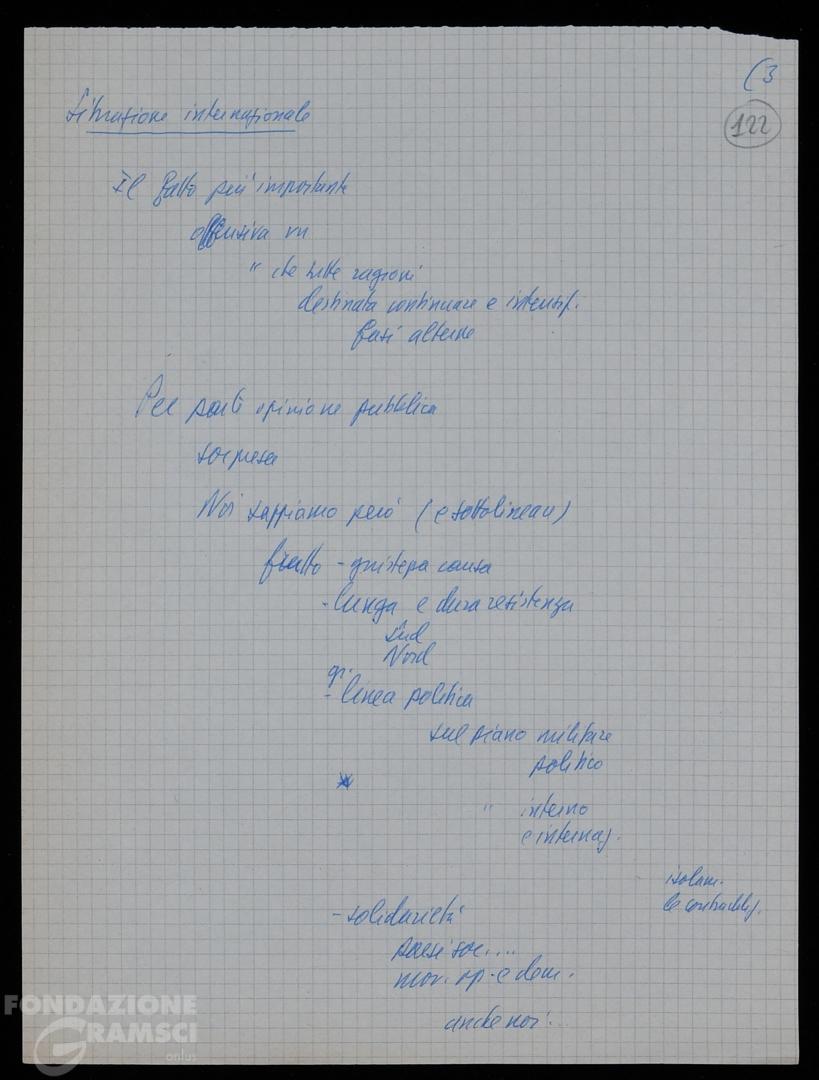 (3
122
Situazione internazionale
Il fatto più importante
offensiva vn
" che tutte ragioni
destinata continuare e intensif.
fasi alterne
Per parte opinione pubblica
sorpresa
Noi sappiamo però (e sottolineau)
frutto - giustezza causa
- lunga e dura resistenza
Sud
Nord
gr.
- linea politica
sul piano militare
politico
" interno
e internaz.
isolam.
le contraddiz.
- solidarietà
paesi soc....
mov. op. e dem.
anche noi...
FONDAZIONE
GRAMSCI
onlus